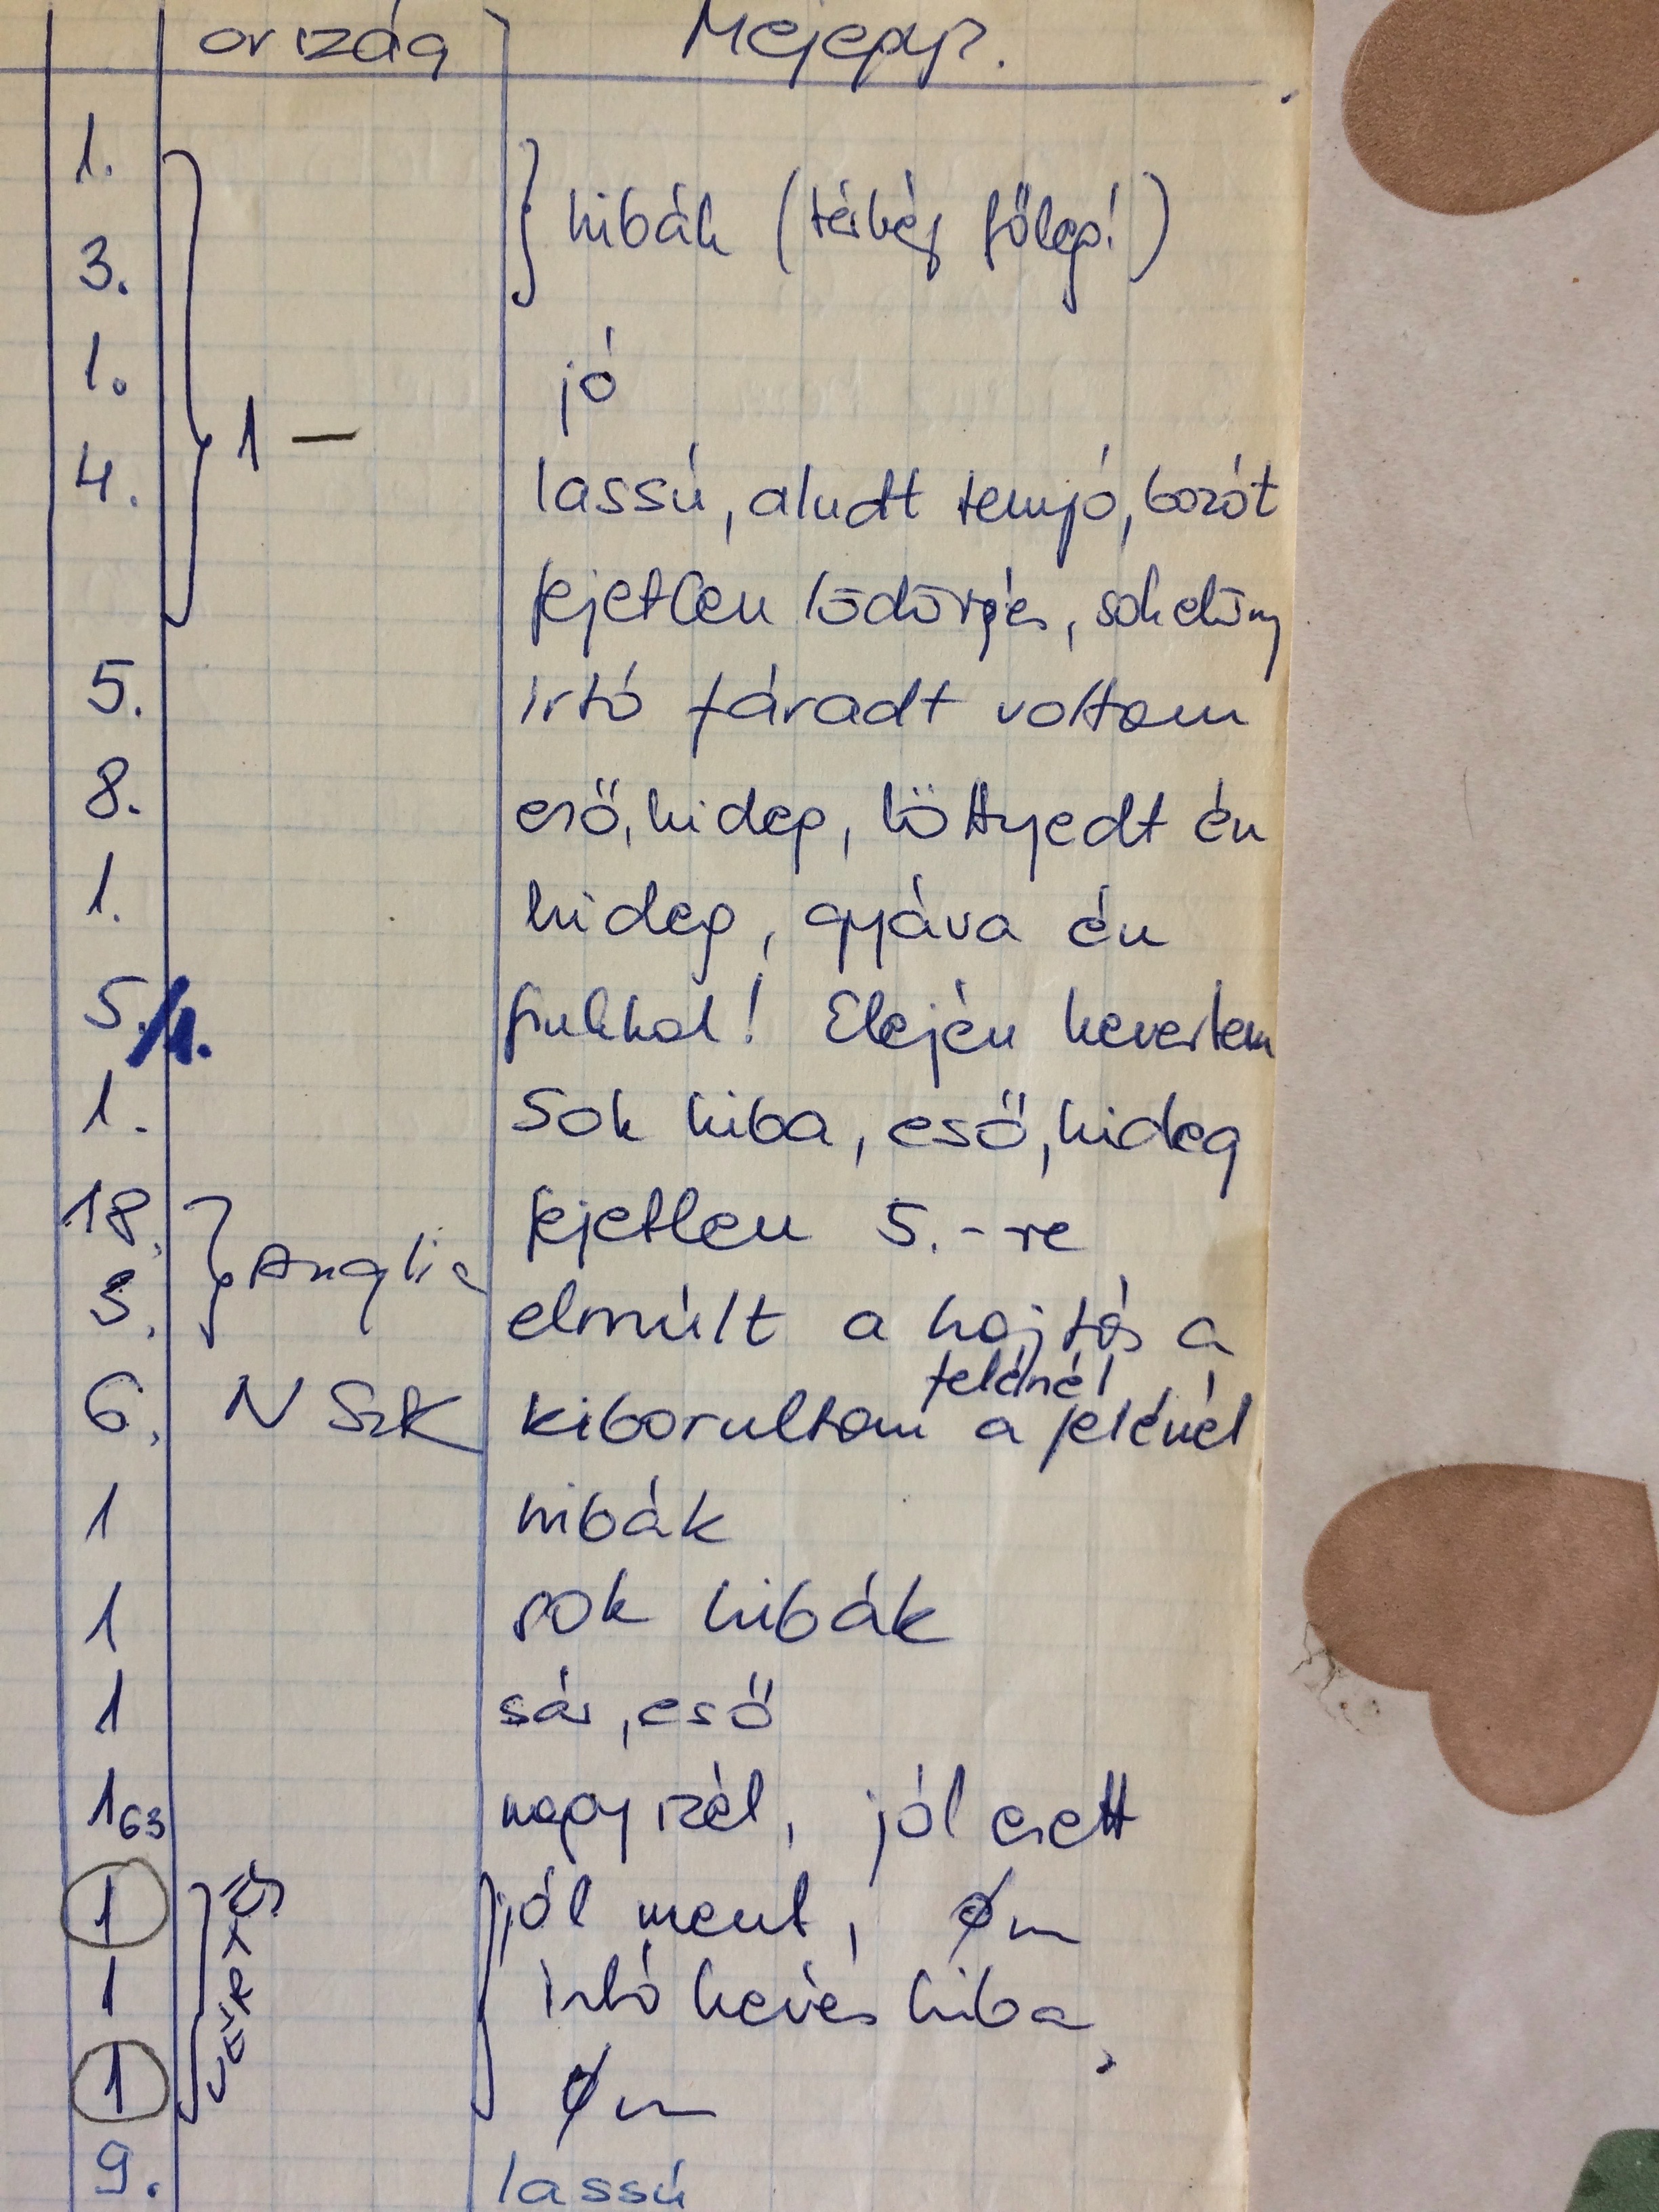 ország Mejegyz.
1.
3. hibák (térkép főleg!)
1. jó
1 —
4. lassú, aludt tempó, bozót
fejetlen lődörgés, sok
5. irtó fáradt voltam
8. eső, hideg, löttyedt én
1. hideg, gyáva én
5./1. Elején kevertem
1. Sok hiba, eső, hideg
18. fejetlen 5.-re
Anglia
3. elmúlt a hajtás a
felénél
6. NSzK kiborultam a felénél
1 hibák
1 sok hibák
1 sár, eső
1 63 nagy szél, jól esett
1 jól ment,
VÉRTES
1 irtó kevés hiba,
1
9. lassú